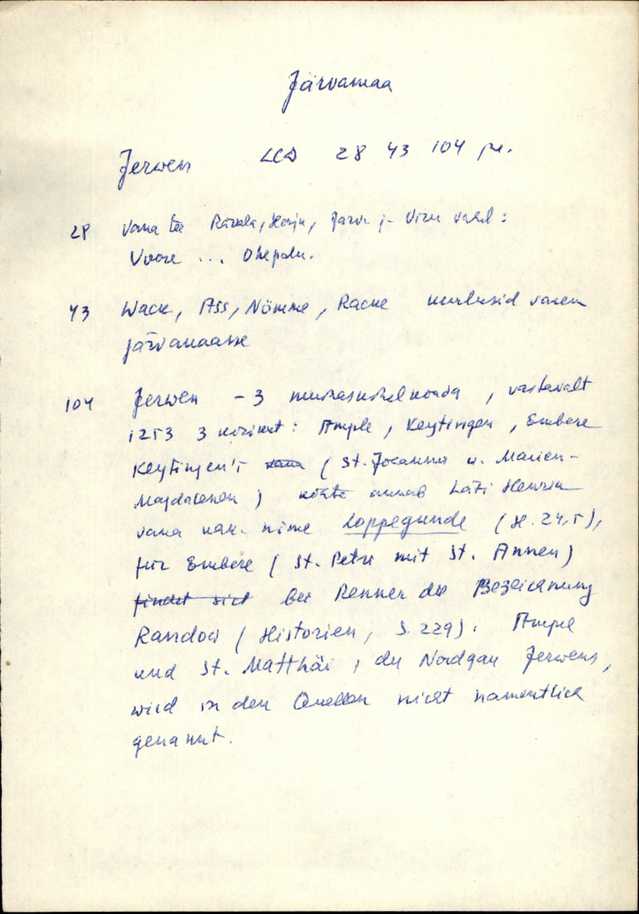 Järvamaa
Jerwen LCD 28 43 104 jm.
28 vana tee Rävala, Harju, Järva ja Viru vahel:
Voore ... Ohepalu.
43 Wack, Ass, Nömme, Racke kuulusid varem
järvamaasse
104 Jerwen – 3 muinaskihelkonda, vastavalt
1253 3 : Ample, Keytingen, Embere
Keytingen'i (St. Johannis u. Marien-
Magdalenen) annab Läti Henrik
vana nime Loppegunde (H. 24,5),
für Embere (St. Petri mit St. Annen)
findet sich bei Renner die Bezeichnung
Randoci (Historien, S. 229). Ample
und St. Matthäi, der Nordgau Jerwens,
wird in den Quellen nicht namentlich
genannt.